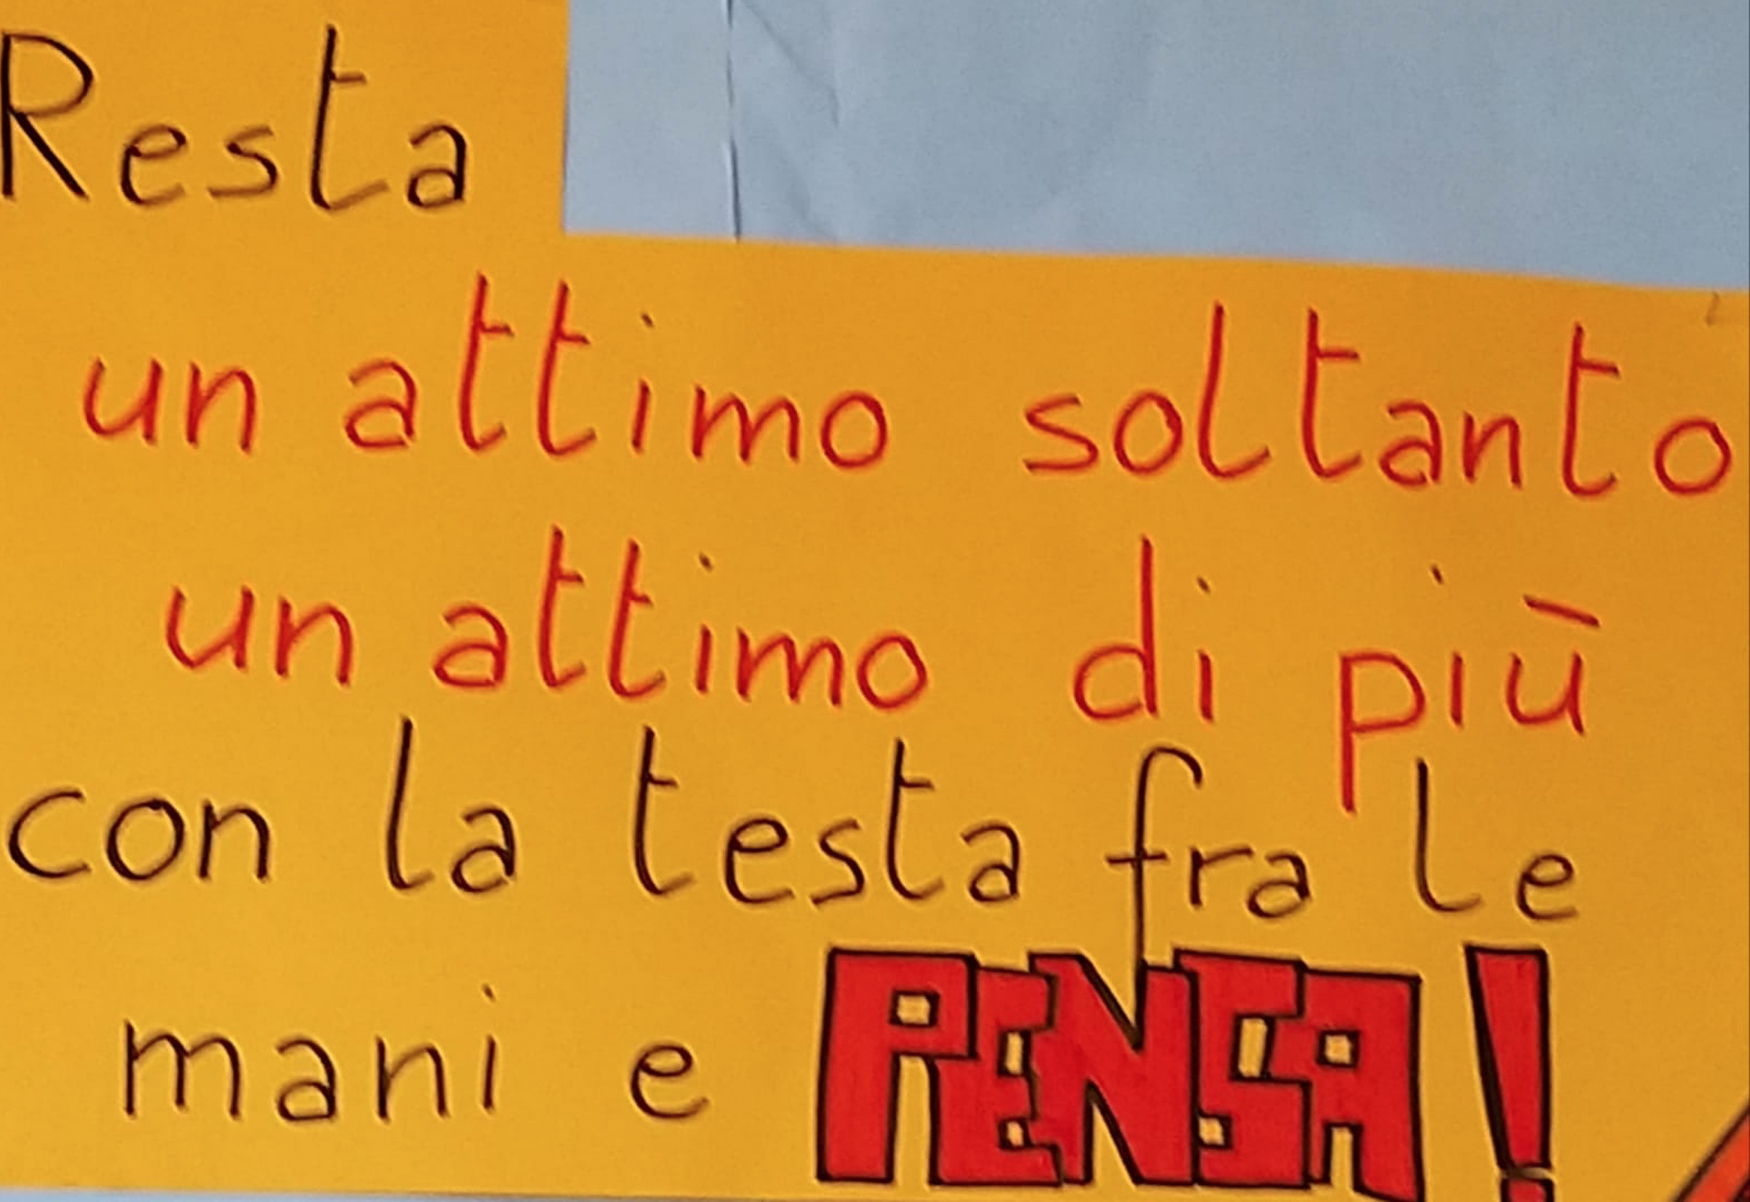 Resta
un attimo soltanto
un attimo di più
con la testa fra le
mani e PENSA!